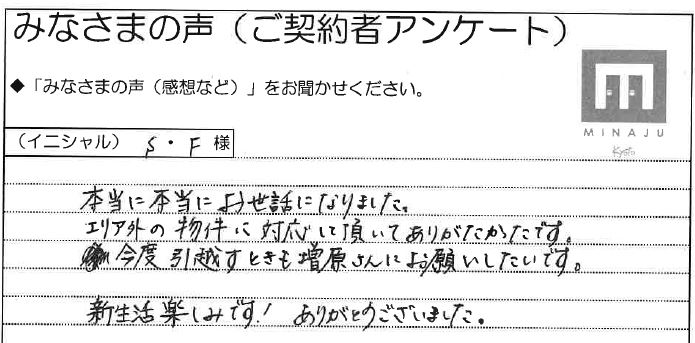 みなさまの声（ご契約者アンケート）
◆「みなさまの声（感想など）」をお聞かせください。
MINAJU
Kyoto
（イニシャル） S・F 様
本当に本当にお世話になりました。
エリア外の物件に対応して頂いてありがたかったです。
今度引越すときも増原さんにお願いしたいです。
新生活楽しみです！ ありがとうございました。